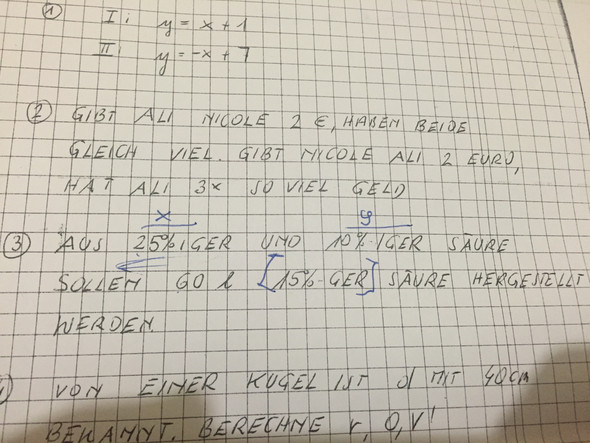 ① I: y = x + 1
II: y = -x + 7
② GIBT ALI NICOLE 2 €, HABEN BEIDE
GLEICH VIEL. GIBT NICOLE ALI 2 EURO,
HAT ALI 3x SO VIEL GELD
x y
③ AUS 25%IGER UND 10%-IGER SÄURE
SOLLEN 60 l [15%-GER] SÄURE HERGESTELLT
WERDEN.
VON EINER KUGEL IST d MIT 40cm
BEKANNT. BERECHNE r, O, V!